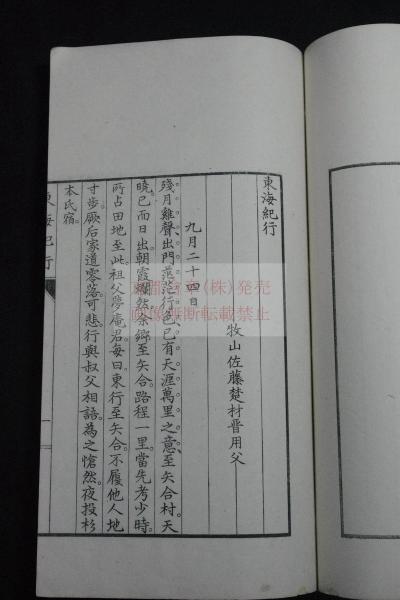 東海紀行
牧山佐藤楚材晋用父
九月二十四日
殘月雞聲出門茫茫行色已有天涯萬里之意至矢合村天
曉已而日出朝霞爛然余鄉至矢合路程一里當先考少時
所占田地至此祖父夢庵君每曰東行至矢合不履他人地
寸步厥后家道零落可悲行與叔父相語為之愴然夜投杉
本氏宿
東海紀行
一
(株)発売
画像無断転載禁止